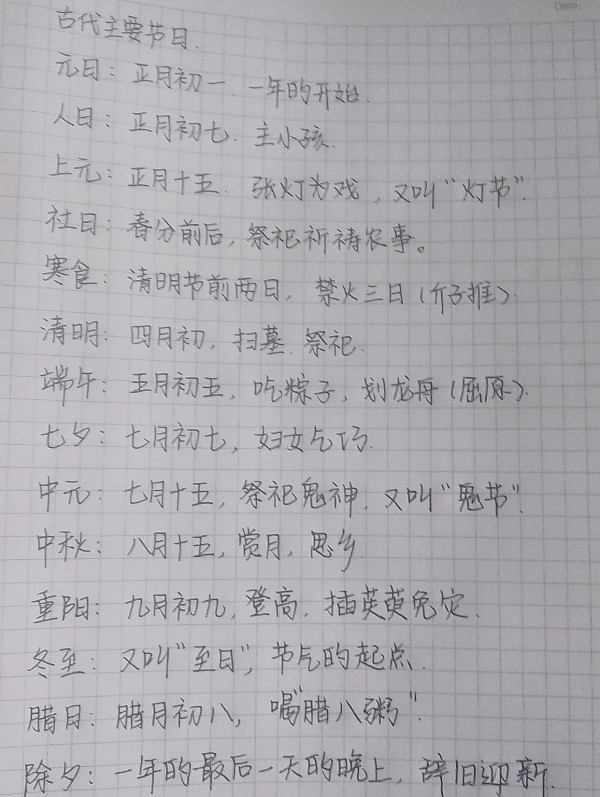 古代主要节日.
元日：正月初一 一年的开始.
人日：正月初七. 主小孩.
上元：正月十五. 张灯为戏，又叫“灯节”.
社日：春分前后，祭祀祈祷农事。
寒食：清明节前两日，禁火三日(介子推).
清明：四月初，扫墓.祭祀.
端午：五月初五，吃粽子，划龙舟(屈原).
七夕：七月初七，妇女乞巧.
中元：七月十五，祭祀鬼神，又叫“鬼节”.
中秋：八月十五，赏月，思乡
重阳：九月初九，登高，插茱萸免灾.
冬至：又叫“至日”，节气的起点.
腊日：腊月初八，喝“腊八粥”.
除夕：一年的最后一天的晚上，辞旧迎新.